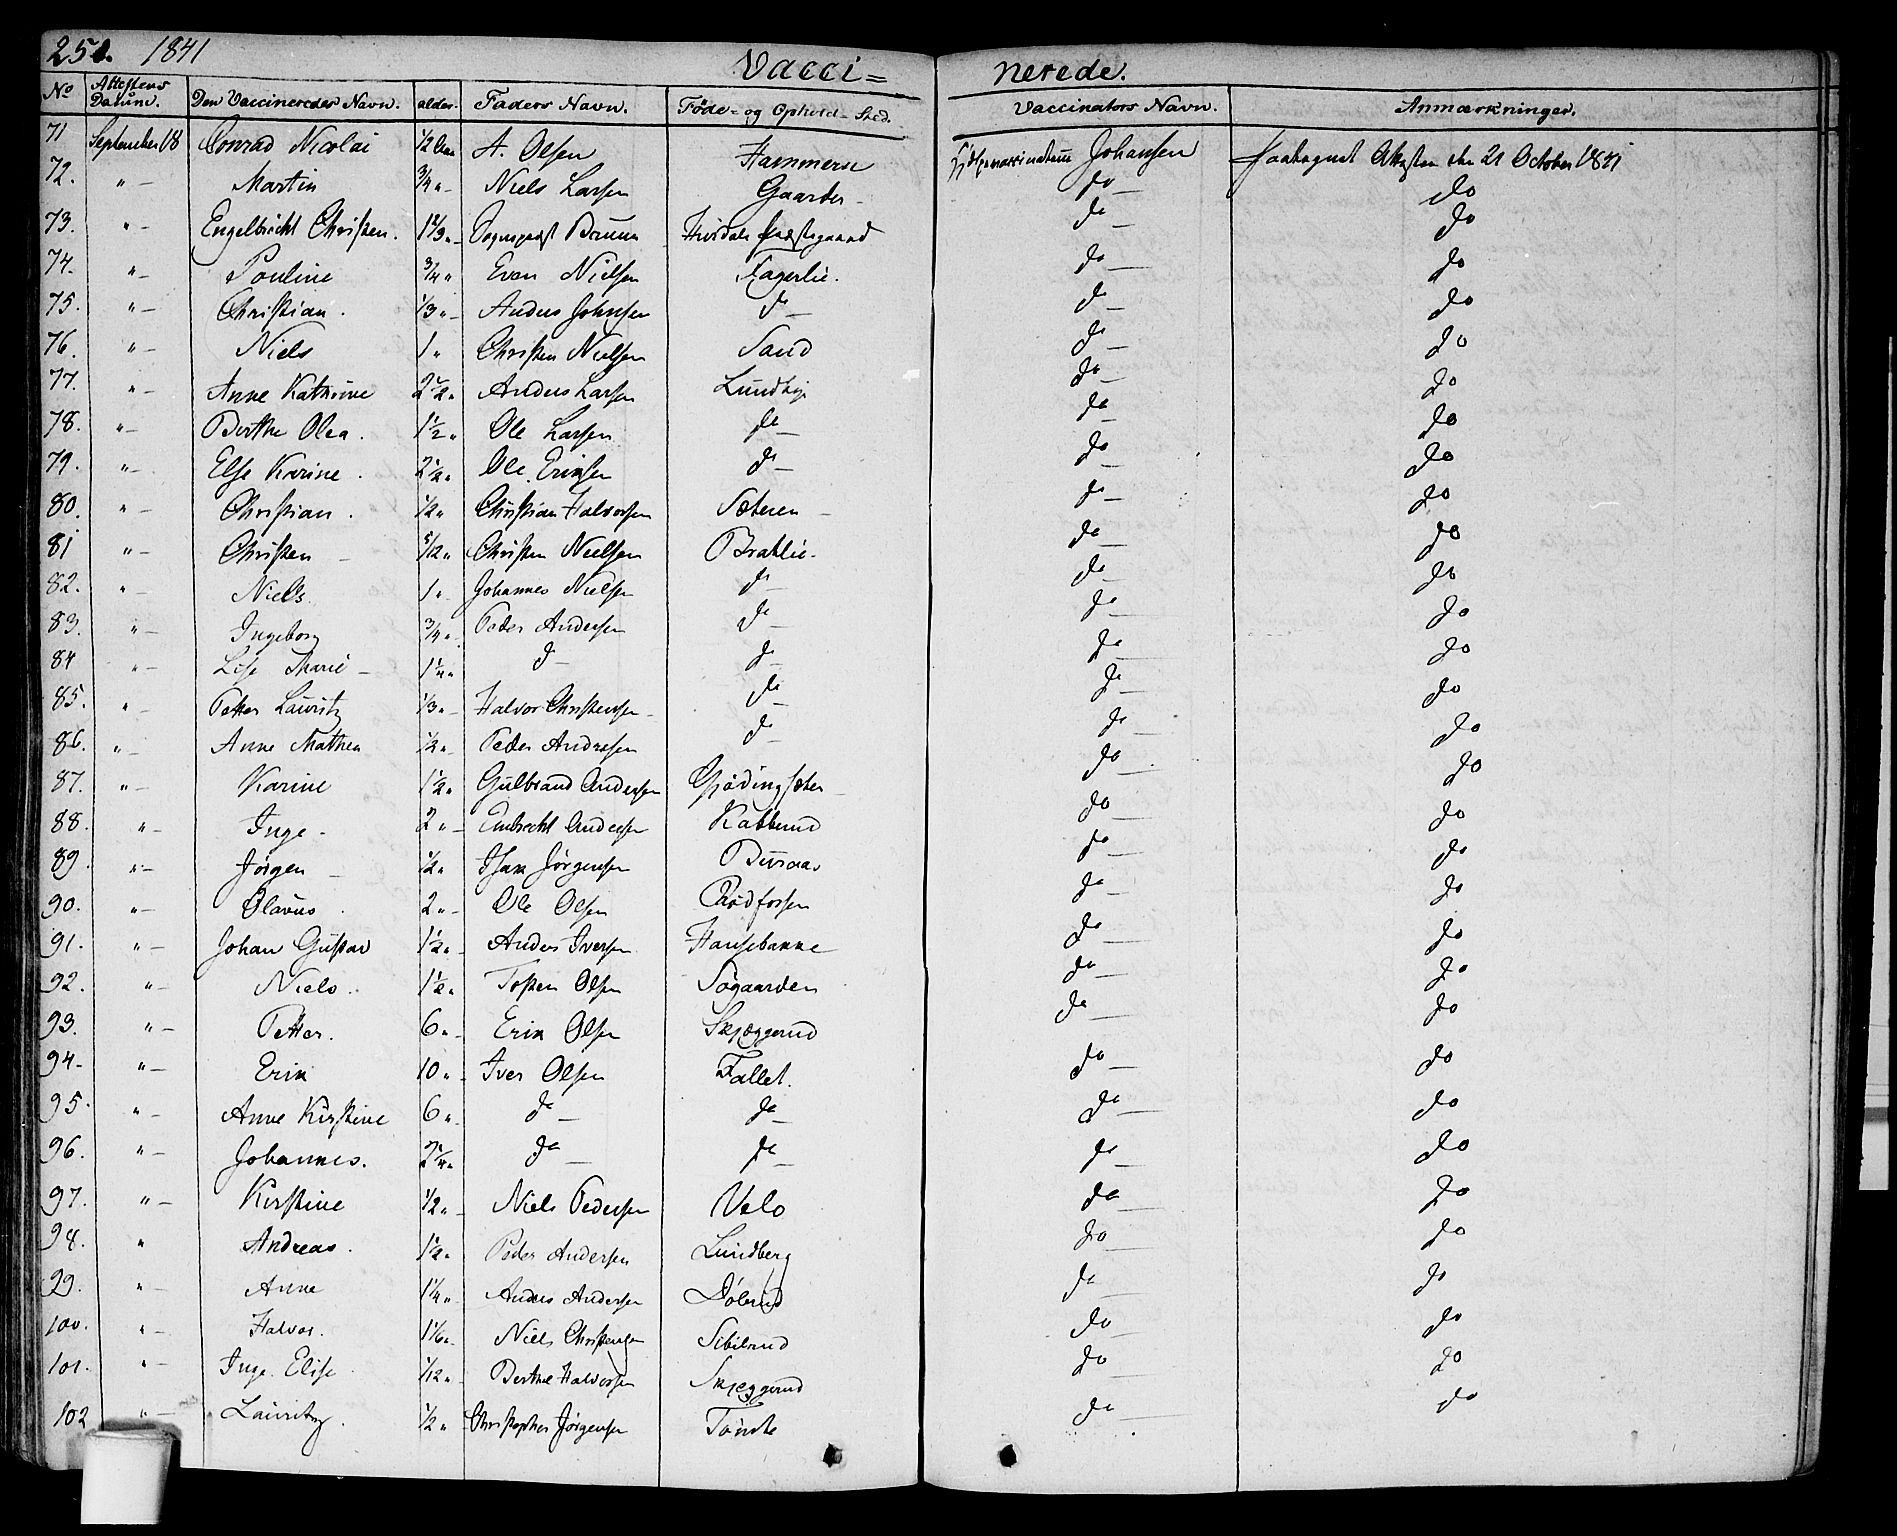 251. 1841 Vacci= nerede.
No Attestens Datum. Den Vaccineredes Navn. alder. Faders Navn. Føde- og Ophold- Sted. Vaccinators Navn. Anmærkninger.
71 September 18 Conrad Nicolai 1/2 A. Olsen Hammeren Johansen Attesten den 21 October 1841
72. " Martin 3/4 " Niels Larsen Gaarder do do
73. " Engelbrecht Christen. 1 1/3 " Bruun Præstegaard do do
74. " Pouline 3/4 " Even Nielsen Fagerlie. do do
75. " Christian. 1/3 " Anders Johnsen do do do
76. " Niels 1 " Christen Nielsen Sand do do
77. " Anne Kathrine 2 1/2 " Anders Larsen Lundbye do do
78. " Berthe Olea. 1 1/2 " Ole Larsen do do do
79. " Else Karine. 2 1/2 " Ole Eriksen do do do
80. " Christian. 1/2 " Christian Halvorsen Sæteren do do
81 " Christen 5/12 " Christen Nielsen Bratlie. do do
82. " Niels. 1 " Johannes Nielsen do do do
83. " Ingeborg 3/4 " Peder Andersen do do do
84 " Lise Marie 1 1/4 " do do do do
85. " Petter Lauritz 1/3 " Halvor Christensen do do do
86. " Anne Mathea 1/2 " Peder Andresen do do do
87. " Karine 1 1/2 " Gulbrand Andersen do do
88. " Inge 2 " Embrecht Andersen Kabberud do do
89. " Jørgen 1/2 " Isak Jørgensen Buraas do do
90. " Olavus 2 " Ole Olsen Rødfossen do do
91. " Johan Gustav 1 1/2 " Anders Iversen Hansebakke do do
92. " Niels. 1 1/2 " Tosten Olsen Søgaarden do do
93. " Petter. 6 " Erik Olsen Skjæggerud do do
94. " Erik 10 " Iver Olsen Fallet. do do
95. " Anne Kirstine 6 " do do do do
96. " Johannes. do do do do
97. " Kirstine 1/2 " Niels Pedersen Velo do do
94. " Andreas. 1 1/2 " Peder Andersen Lundberg do do
99. " Anne 1 1/4 " Anders Andersen Dølerud do do
100. " Halvor. 1 1/6 " Niels Christensen Sibilrud do do
101. " Inge Elise 1/12 " Berthel Halvorsen Skjeggerud do do
102 " Lauritz. 1/2 " Christopher Jørgensen Tønste do do